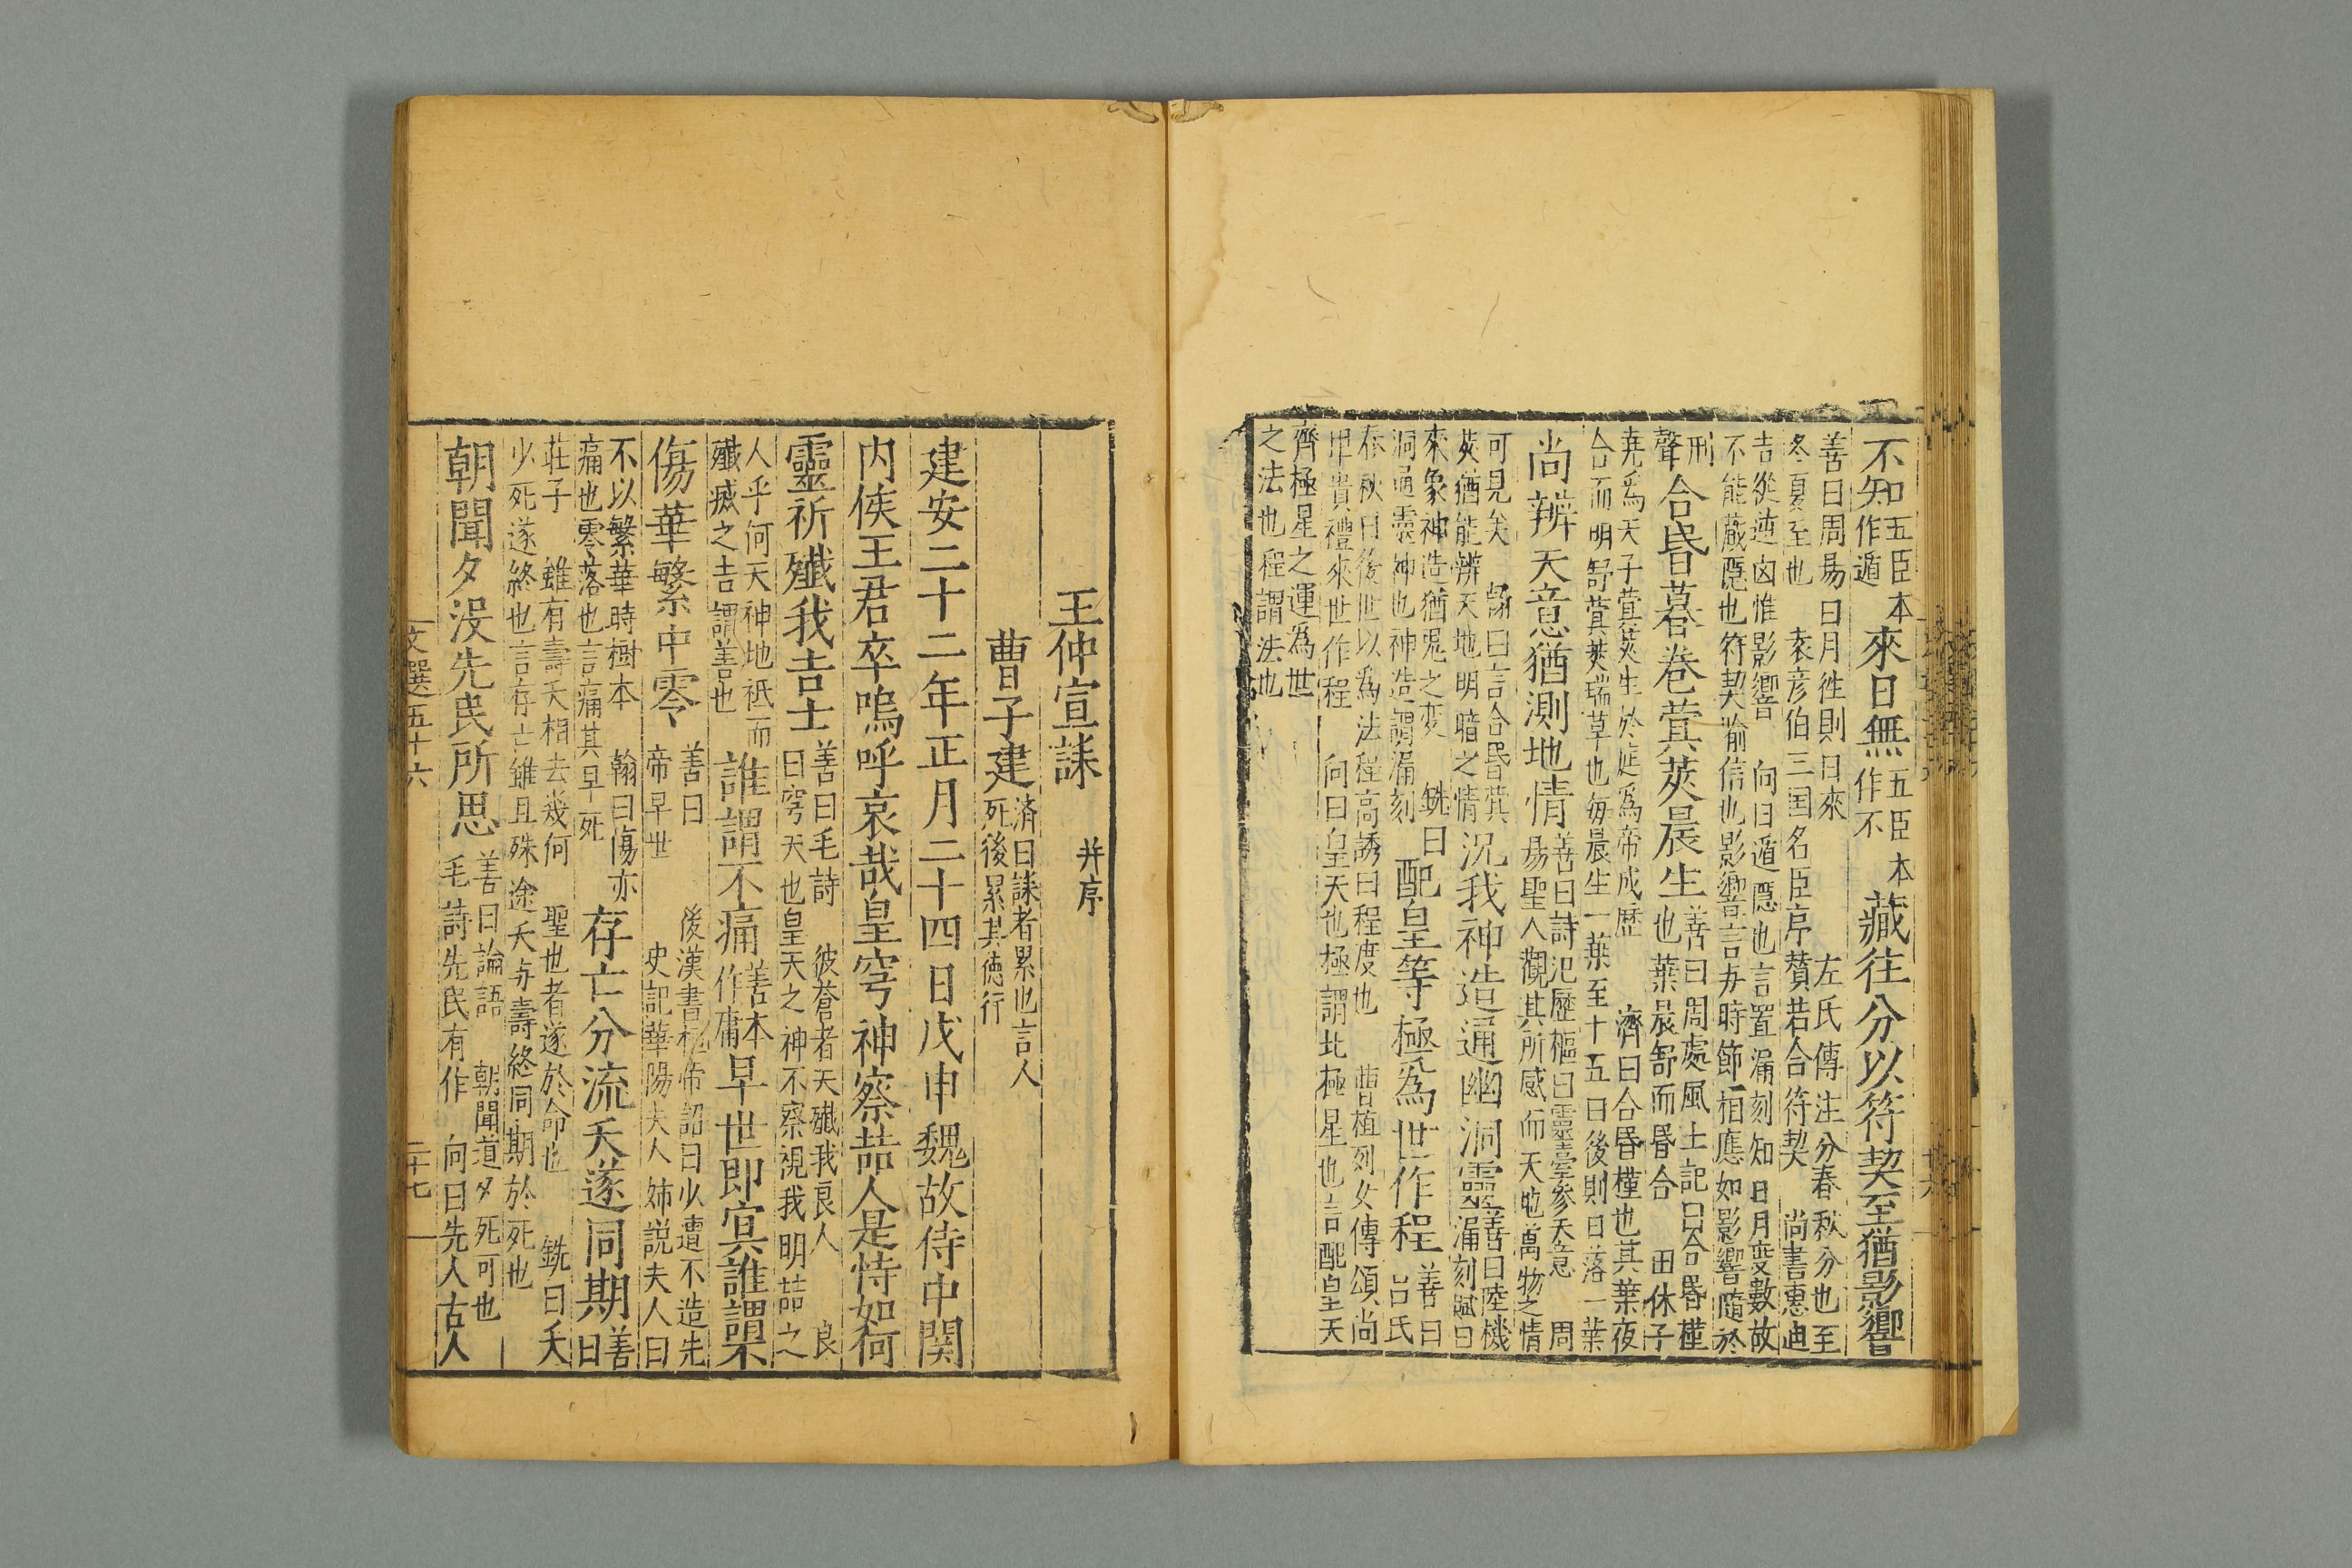 不知五臣本作遁來日無五臣本作不藏往分以符契至猶影響
善曰周易曰月徃則日來 左氏傳注分春秋分也至
冬夏至也 袁彦伯三国名臣序賛若合符契 尚書惠迪
吉從逆凶惟影響 向曰遁隱也言置漏刻知日月变數故
不能蔵隱也符契喻信也影響言与時節相應如影響隨於
刑聲合昏暮卷蓂莢晨生善曰周處風土記曰合昬槿也葉晨舒而昬合 田休子
堯爲天子蓂莢生於庭爲帝成歷 濟曰合昬槿也其葉夜
合而明舒蓂莢瑞草也每晨生一葉至十五日後則日落一葉
尚辨天意猶測地情善曰詩汜歷樞曰靈臺参天意 周易聖人觀其所感而天地萬物之情
可見矣 翰曰言合昬蓂莢猶能辨天地明暗之情況我神造通幽洞靈善曰陸機漏刻賦曰
來象神造猶鬼之変 銑曰洞通霊神也神造謂漏刻配皇等極爲世作程善曰吕氏
春秋曰後世以為法程高誘曰程度也 曹植列女傳頌尚
卑貴禮來世作程 向曰皇天也極謂北極星也言配皇天
齊極星之運爲世
之法也程謂法也
王仲宣誄 并序
曹子建濟曰誄者累也言人死後累其徳行
建安二十二年正月二十四日戊申魏故侍中関
内侯王君卒嗚呼哀哉皇穹神察喆人是恃如何
靈祈殲我吉士善曰毛詩 彼蒼者天殲我良人 良曰穹天也皇天之神不察視我明喆之
人乎何天神地祇而殲㓕之吉謂善也誰謂不痛善本作庸早世即㝠誰謂不
傷華繁中零善曰 後漢書桓帝詔曰少遭不造先帝早世 史記華陽夫人姉説夫人曰
不以繁華時樹本 翰曰傷亦痛也零落也言痛其早死存亡分流夭遂同期善曰
荘子 雖有壽夭相去幾何 聖也者遂於命也 銑曰夭
少死遂終也言存亡雖且殊途夭与壽終同期於死也
朝聞夕没先民所思善曰論語 朝聞道夕死可也毛詩先民有作 向曰先人古人
文選五十六 二十七